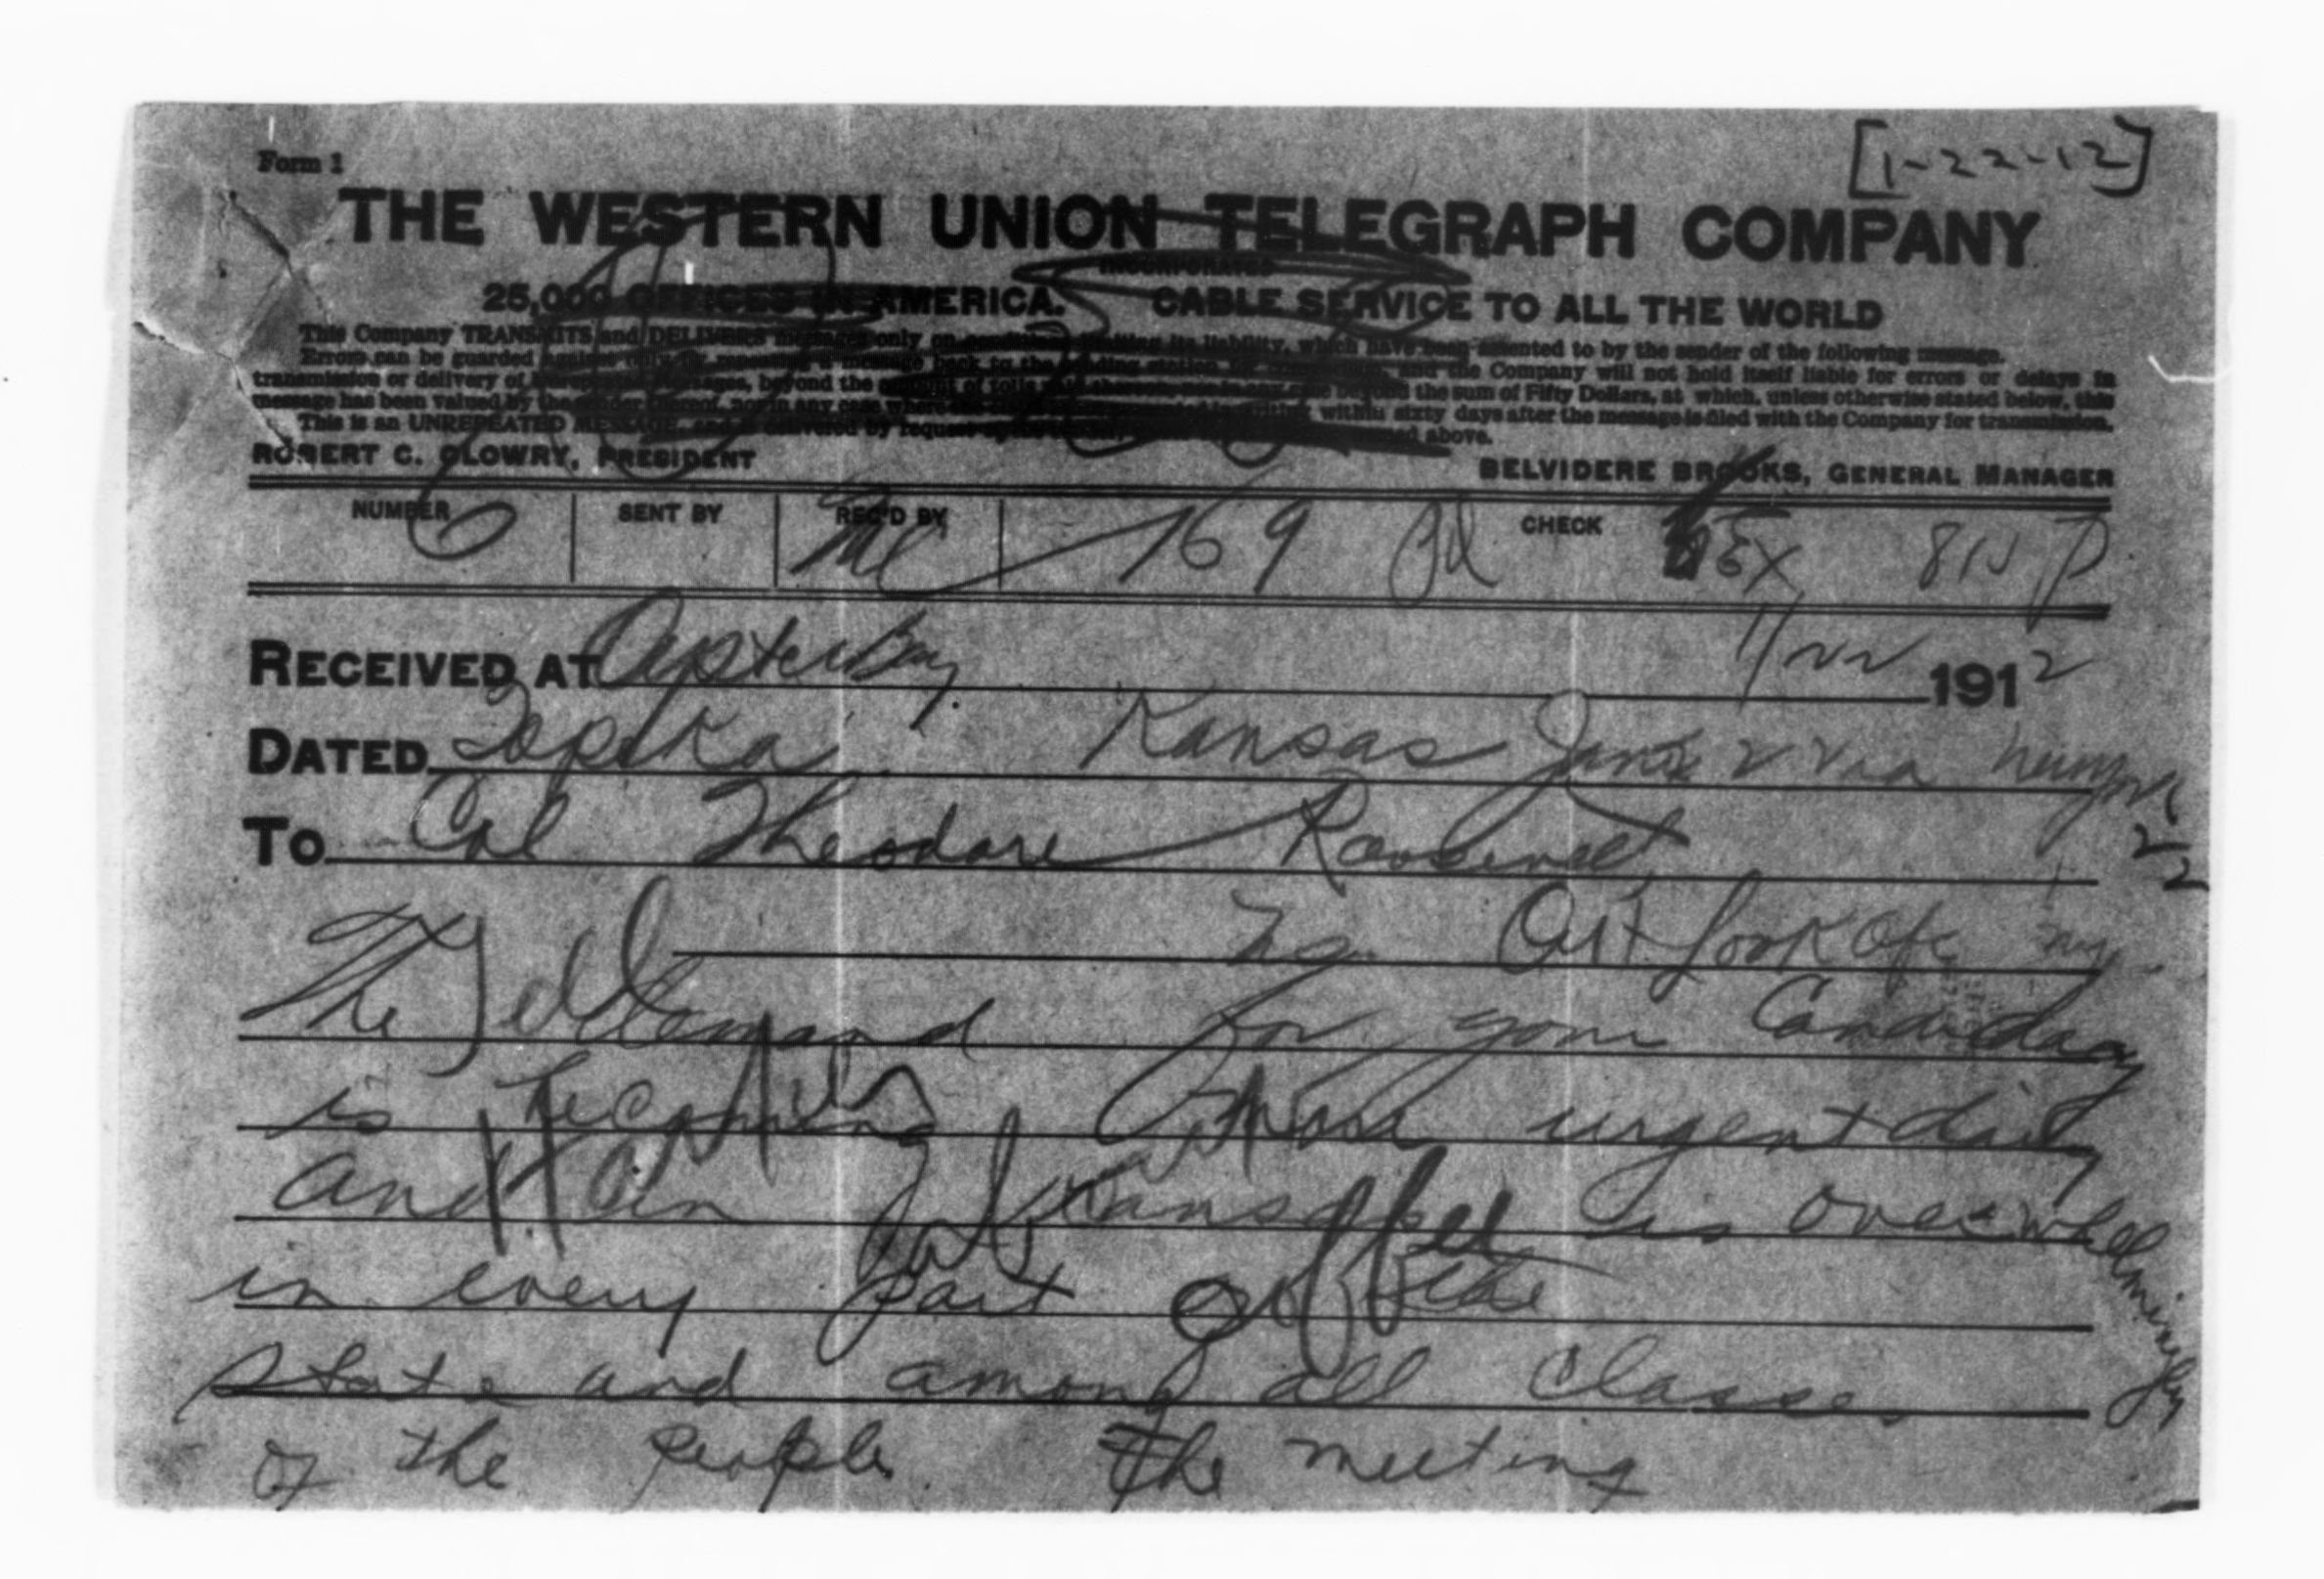 [1-22-12]
Form 1
THE WESTERN UNION TELEGRAPH COMPANY
INCORPORATED
25,000 OFFICES IN AMERICA. CABLE SERVICE TO ALL THE WORLD
This Company TRANSMITS and DELIVERS messages only on conditions limiting its liability, which have been assented to by the sender of the following message.
Errors can be guarded against only by repeating a message back to the sending station for comparison, and the Company will not hold itself liable for errors or delays in
transmission or delivery of Unrepeated Messages, beyond the amount of tolls paid thereon, nor in any case beyond the sum of Fifty Dollars, at which, unless otherwise stated below, this
message has been valued by the sender thereof, nor in any case where the claim is not presented in writing within sixty days after the message is filed with the Company for transmission.
This is an UNREPEATED MESSAGE, and is delivered by request of the sender, under the conditions named above.
ROBERT C. CLOWRY, PRESIDENT BELVIDERE BROOKS, GENERAL MANAGER
NUMBER SENT BY REC'D BY CHECK
6 169 Pd Ex
RECEIVED AT Oyster Bay 1/22 1912
DATED Topeka Kansas Jan 22 Via Newyork
22
To Col Theodore Roosevelt,
Outlook Ofc ny.
The demand for your Candidacy
is becoming more urgent daily
and in Kansas is overwhelmingly
in every part of the
state and among all classes
of the people. The meeting